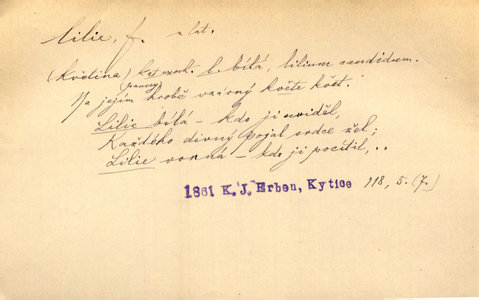 Lilie, f. z lat.
(květina) κατ' εξοχ. l. bílá, lilium candidum.
(panny)
Na jejím hrobě vzácný květe květ.
Lilie bílá – kdo ji uviděl,
Každého divný pojal srdce žel;
Lilie vonná – kdo ji pocítil, ..
1861 K. J. Erben, Kytice 118, 5. (7.)